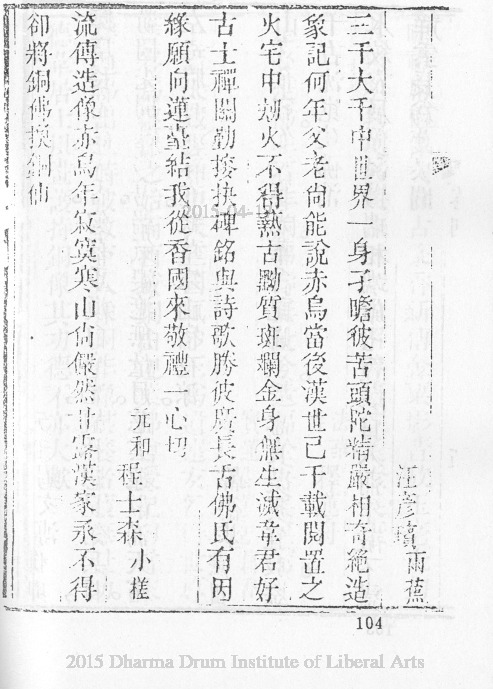 汪彥瓆雨蕉
三千大千中世界一身孑瞻彼苦頭陀精嚴相奇絶造
象記何年父老尙能說赤烏當後漢世已千載閱置之
火宅中刼火不得熱古黝質斑斕金身無生滅韋君好
古士禪關勤接抉碑銘與詩歌勝彼廣長舌佛氏有因
緣願向蓮臺結我從香國來敬禮一心切
元和程士森小槎
流傳造像赤烏年寂寞寒山尙儼然甘露漢家承不得
卻將銅佛換銅仙
104
2015-04-13
2015 Dharma Drum Institute of Liberal Arts